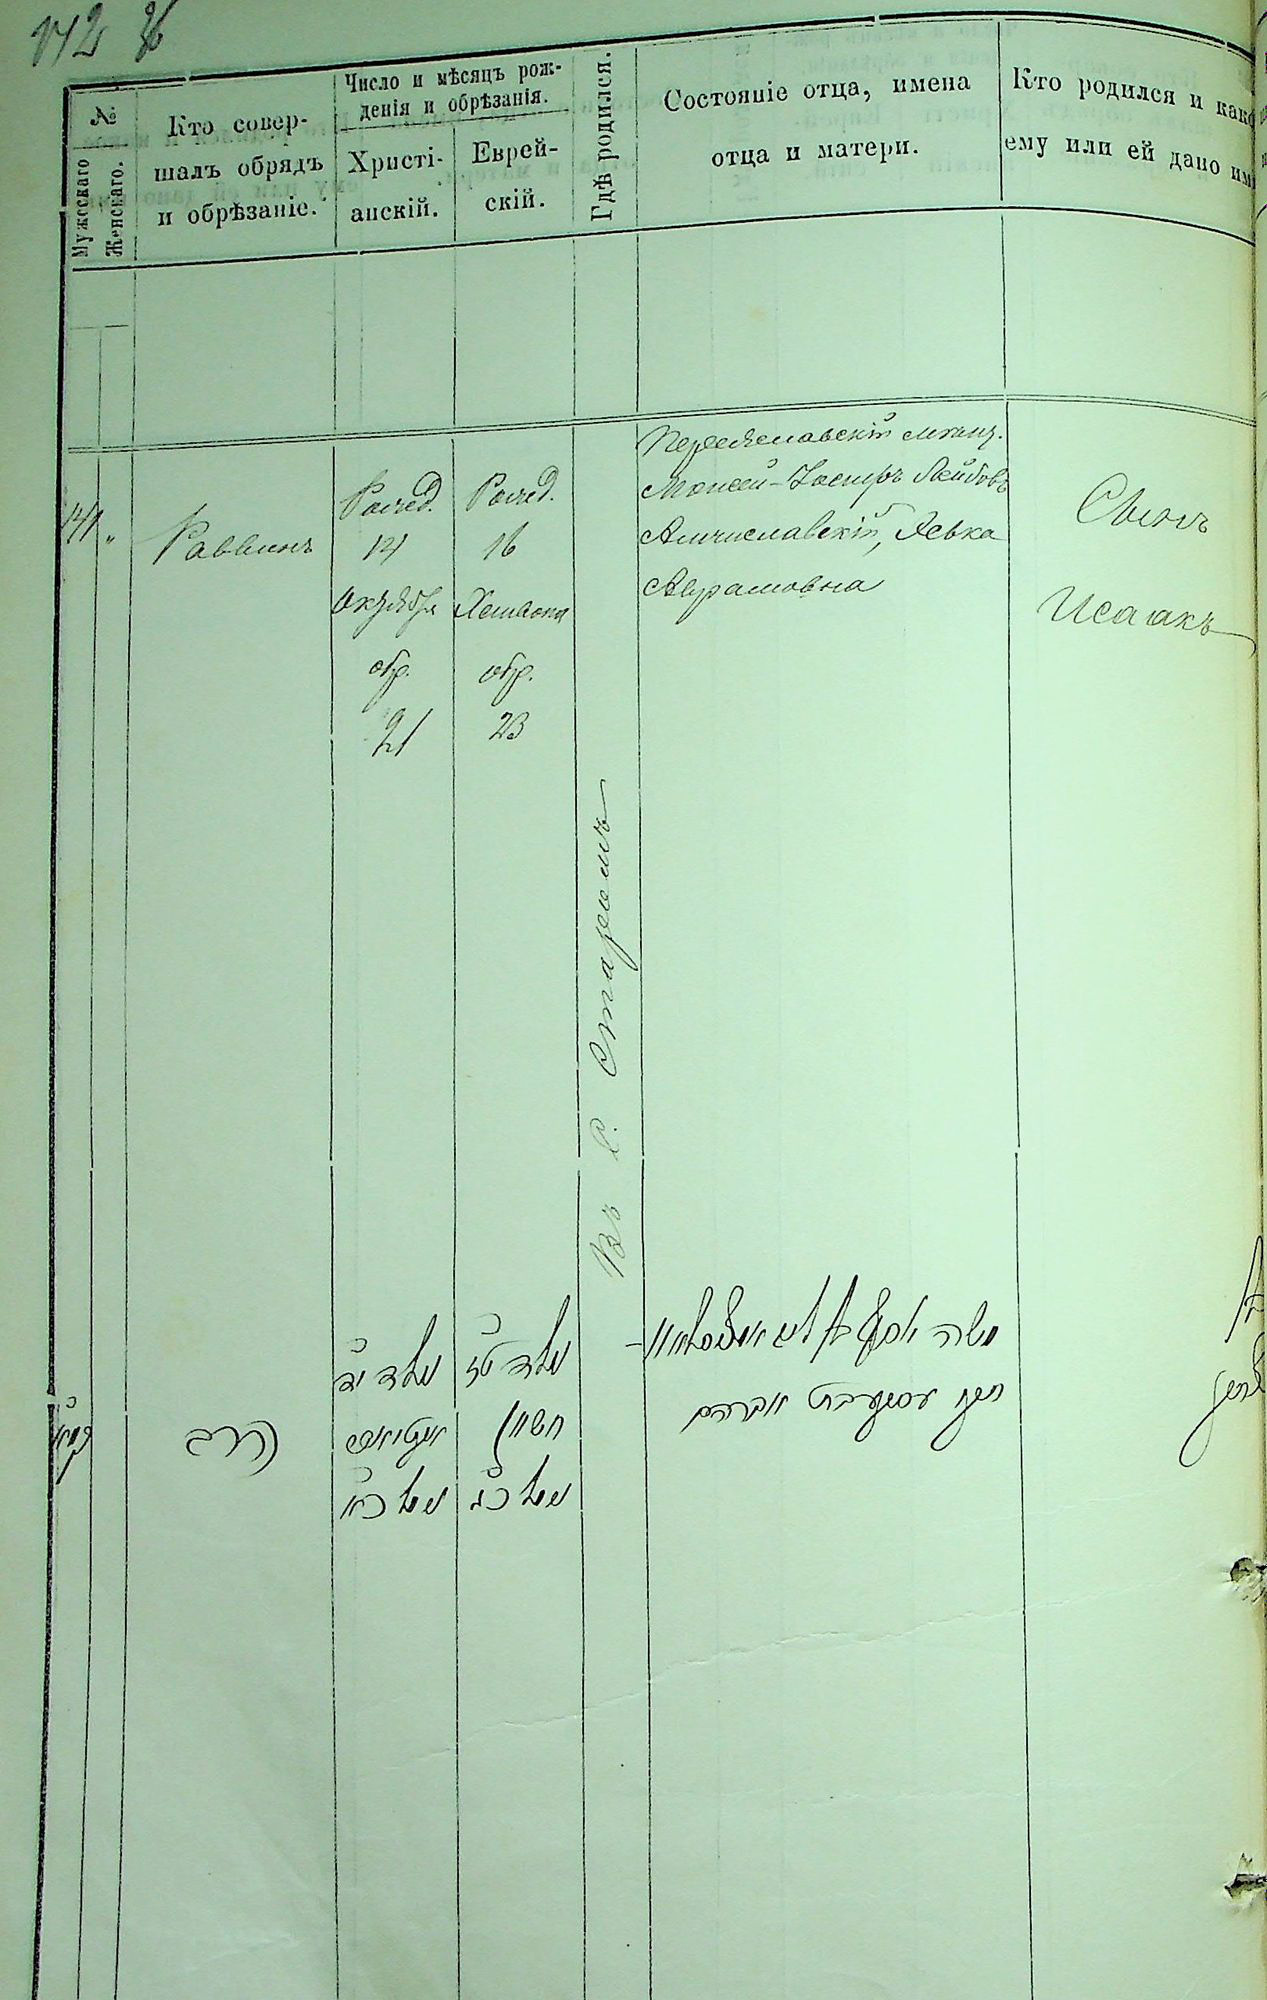 142
№
Мужескаго
Женскаго.
Кто совер-
шалъ обрядъ
и обрѣзаніе.
Число и мѣсяцъ рож-
денія и обрѣзанія.
Христі-
анскій.
Еврей-
скій.
Гдѣ родился.
Состояніе отца, имена
отца и матери.
Кто родился и како
ему или ей дано им
141 "
Раввинъ
Рожд.
14
Октября
обр.
21
Рожд.
16
Хешвона
обр.
23
Въ с. Старомъ
Переяславскій мѣщ.
Моисей-Іосифъ Лейбовъ
Амчиславскій, Хевка
Абрамовна
Сынъ
Исаакъ
קמ״א
הרב
נולד יד
אקטיאבר
נימול כא
נולד טז
חשון
נימול כג
משה יוסף
אברהם